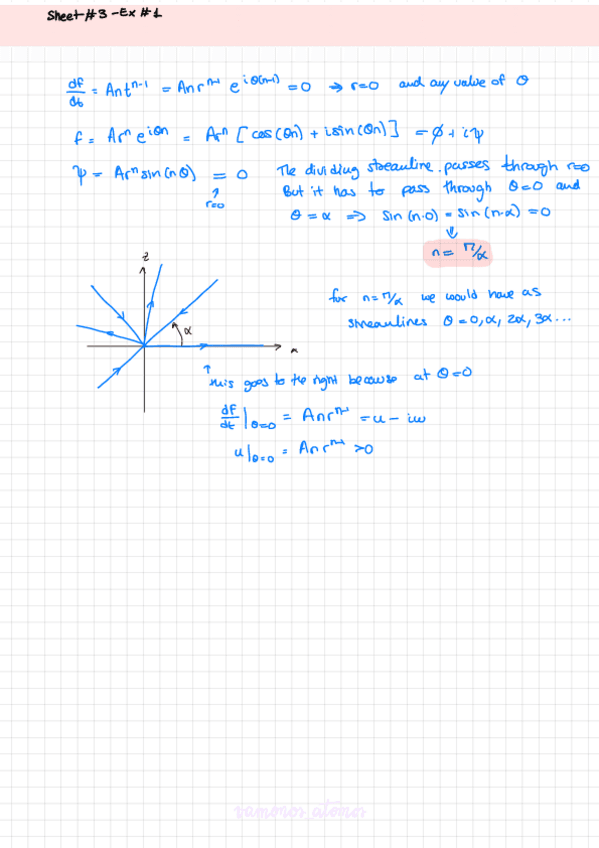 Sheet #3 - Ex #1
df/dt = Ant^n-1 = Anr^n-1 e^iθ(n-1) = 0 → r=0 and any value of θ
f = Ar^n e^iθn = Ar^n [cos(θn) + isin(θn)] = ϕ + iψ
ψ = Ar^n sin(nθ) = 0
↑
r=0
The dividing streamline passes through r=0
But it has to pass through θ=0 and
θ = α ⇒ sin(n·0) = sin(n·α) = 0
↓
n = π/α
for n=π/α we would have as
streamlines θ = 0, α, 2α, 3α...
z
α
x
↑ this goes to the right because at θ=0
df/dt |θ=0 = Anr^n-1 = u - iw
u|θ=0 = Anr^n-1 > 0
vamonos_atomos